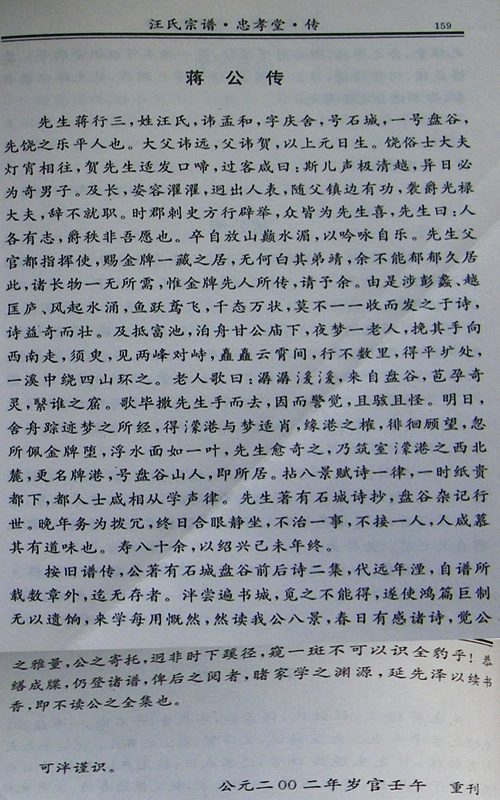 汪氏宗谱·忠孝堂·传
159
蒋公传
先生蒋行三，姓汪氏，讳孟和，字庆舍，号石城，一号盘谷，
先饶之乐平人也。大父讳远，父讳贺，以上元日生。饶俗士大夫
灯宵相往，贺先生适发口啼，过客咸曰：斯儿声极清越，异日必
为奇男子。及长，姿容濯濯，迥出人表，随父镇边有功，袭爵光禄
大夫，辞不就职。时郡刺史方行辟举，众皆为先生喜，先生曰：人
各有志，爵秩非吾愿也。卒自放山巅水湄，以吟咏自乐。先生父
官都指挥使，赐金牌一藏之居，无何白其弟靖，余不能郁郁久居
此，诸长物一无所需，惟金牌先人所传，请予余。由是涉彭蠡、越
匡庐、风起水涌，鱼跃鸢飞，千态万状，莫不一一收而发之于诗，
诗益奇而壮。及抵富池，泊舟甘公庙下，夜梦一老人，挽其手向
西南走，须臾，见两峰对峙，矗矗云宵间，行不数里，得平圹处，
一溪中绕四山环之。老人歌曰：潺潺湲湲，来自盘谷，芭孕奇
灵，繄谁之窟。歌毕撒先生手而去，因而警觉，且骇且怪。明日，
舍舟踪迹梦之所经，得濠港与梦适肖，缘港之榷，徘徊顾望，忽
所佩金牌堕，浮水面如一叶，先生愈奇之，乃筑室濠港之西北
麓，更名牌港，号盘谷山人，即所居。拈八景赋诗一律，一时纸贵
都下，都人士咸相从学声律。先生著有石城诗抄，盘谷杂记行
世。晚年务为拨冗，终日合眼静坐，不治一事，不接一人，人咸慕
其有道味也。寿八十余，以绍兴己未年终。
按旧谱传，公著有石城盘谷前后诗二集，代远年湮，自谱所
载数章外，迄无存者。泮尝遍书城，觅之不能得，遂使鸿篇巨制
无以遗饷，来学每用慨然，然读我公八景，春日有感诸诗，觉公
之雅量，公之寄托，迥非时下蹊径，窥一斑不可以识全豹乎！恭
缮成牒，仍登诸谱，俾后之阅者，睹家学之渊源，延先泽以续书
香，即不读公之全集也。
可泮谨识。
公元二00二年岁官壬午 重刊